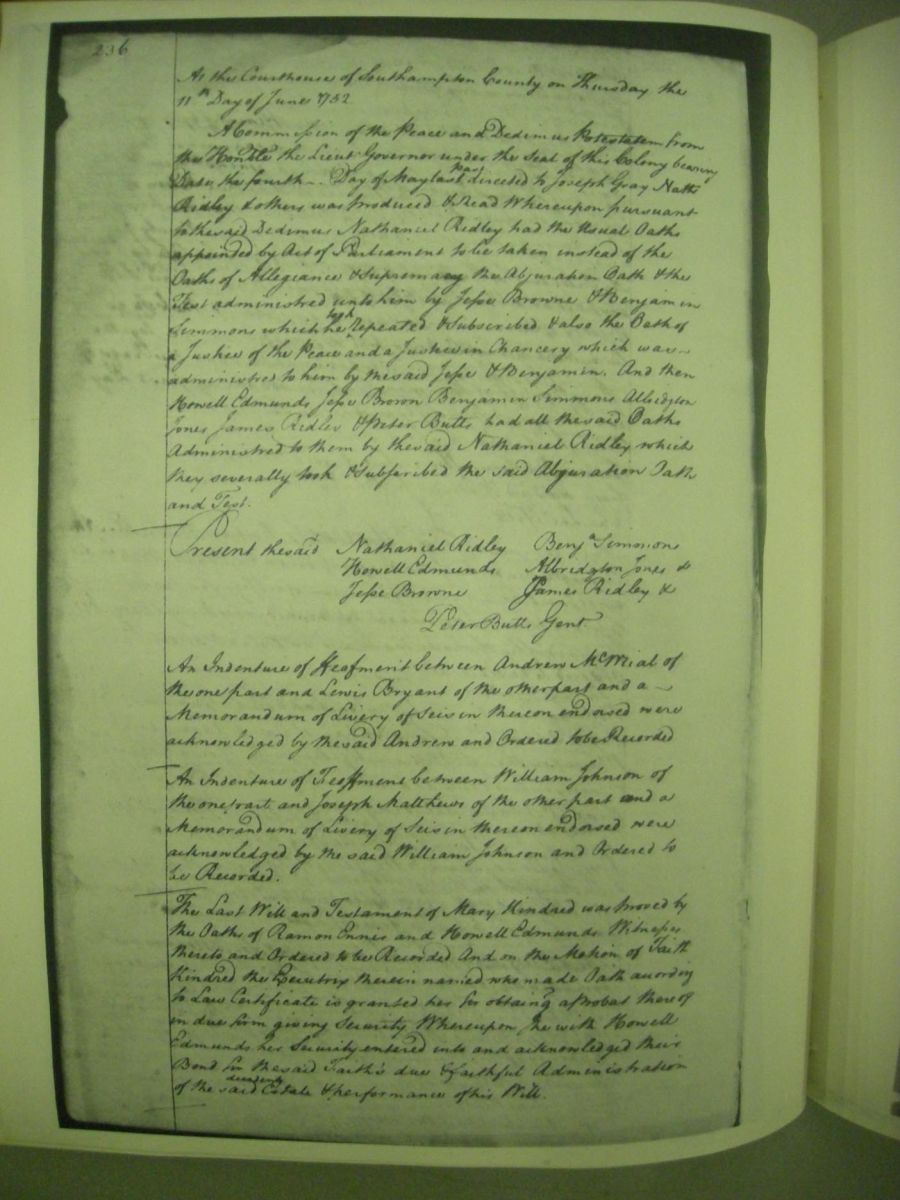 236
At the Courthouse of Southampton County on Thursday the
11th Day of June 1752
A Commission of the Peace and Dedimus Potestatem from
the Honble the Lieut Governor under the Seal of this Colony bearing
Date the fourth Day of May last past directed to Joseph Gray Nathl
Ridley & others was produced & Read Whereupon pursuant
to the said Dedimus Nathaniel Ridley had the Usual Oaths
appointed by Act of Parliament to be taken instead of the
Oaths of Allegiance & Supremacy the Abjuration Oath & the
Test administred unto him by Jesse Browne & Benjamin
Simmons which he took Repeated & Subscribed & also the Oath of
a Justice of the Peace and a Justice in Chancery which was
administred to him by the said Jesse & Benjamin. And then
Howell Edmunds Jesse Brown Benjamin Simmons Albidgton
Jones James Ridley & Peter Butts had all the said Oaths
Administred to them by the said Nathaniel Ridley which
they severally took & Subscribed the said Abjuration Oath
and Test.
Present the said Nathaniel Ridley Benja Simmons
Howell Edmunds Albridgton Jones &
Jesse Browne James Ridley &
Peter Butts Gent
An Indenture of Feofment between Andrew of
the one part and Lewis Bryant of the other part and a
Memorandum of Livery of Seisin thereon endorsed were
acknowledged by the said Andrew and Ordered to be Recorded
An Indenture of Feoffment between William Johnson of
the one part and Joseph Matthews of the other part and a
Memorandum of Livery of Seisin thereon endorsed were
acknowledged by the said William Johnson and Ordered to
be Recorded.
The Last Will and Testament of Mary Kindred was proved by
the Oaths of Ramon Ennis and Howell Edmunds Witnesses
thereto and Ordered to be Recorded And on the Motion of Faith
Kindred the Executrix therein named who made Oath according
to Law Certificate is granted her for obtaing a probat thereof
in due form giving Security Whereupon she with Howell
Edmunds her Security entered into and acknowledged their
Bond for the said Faith's due & faithful Administration
of the said decedents Estate & performance of his Will.